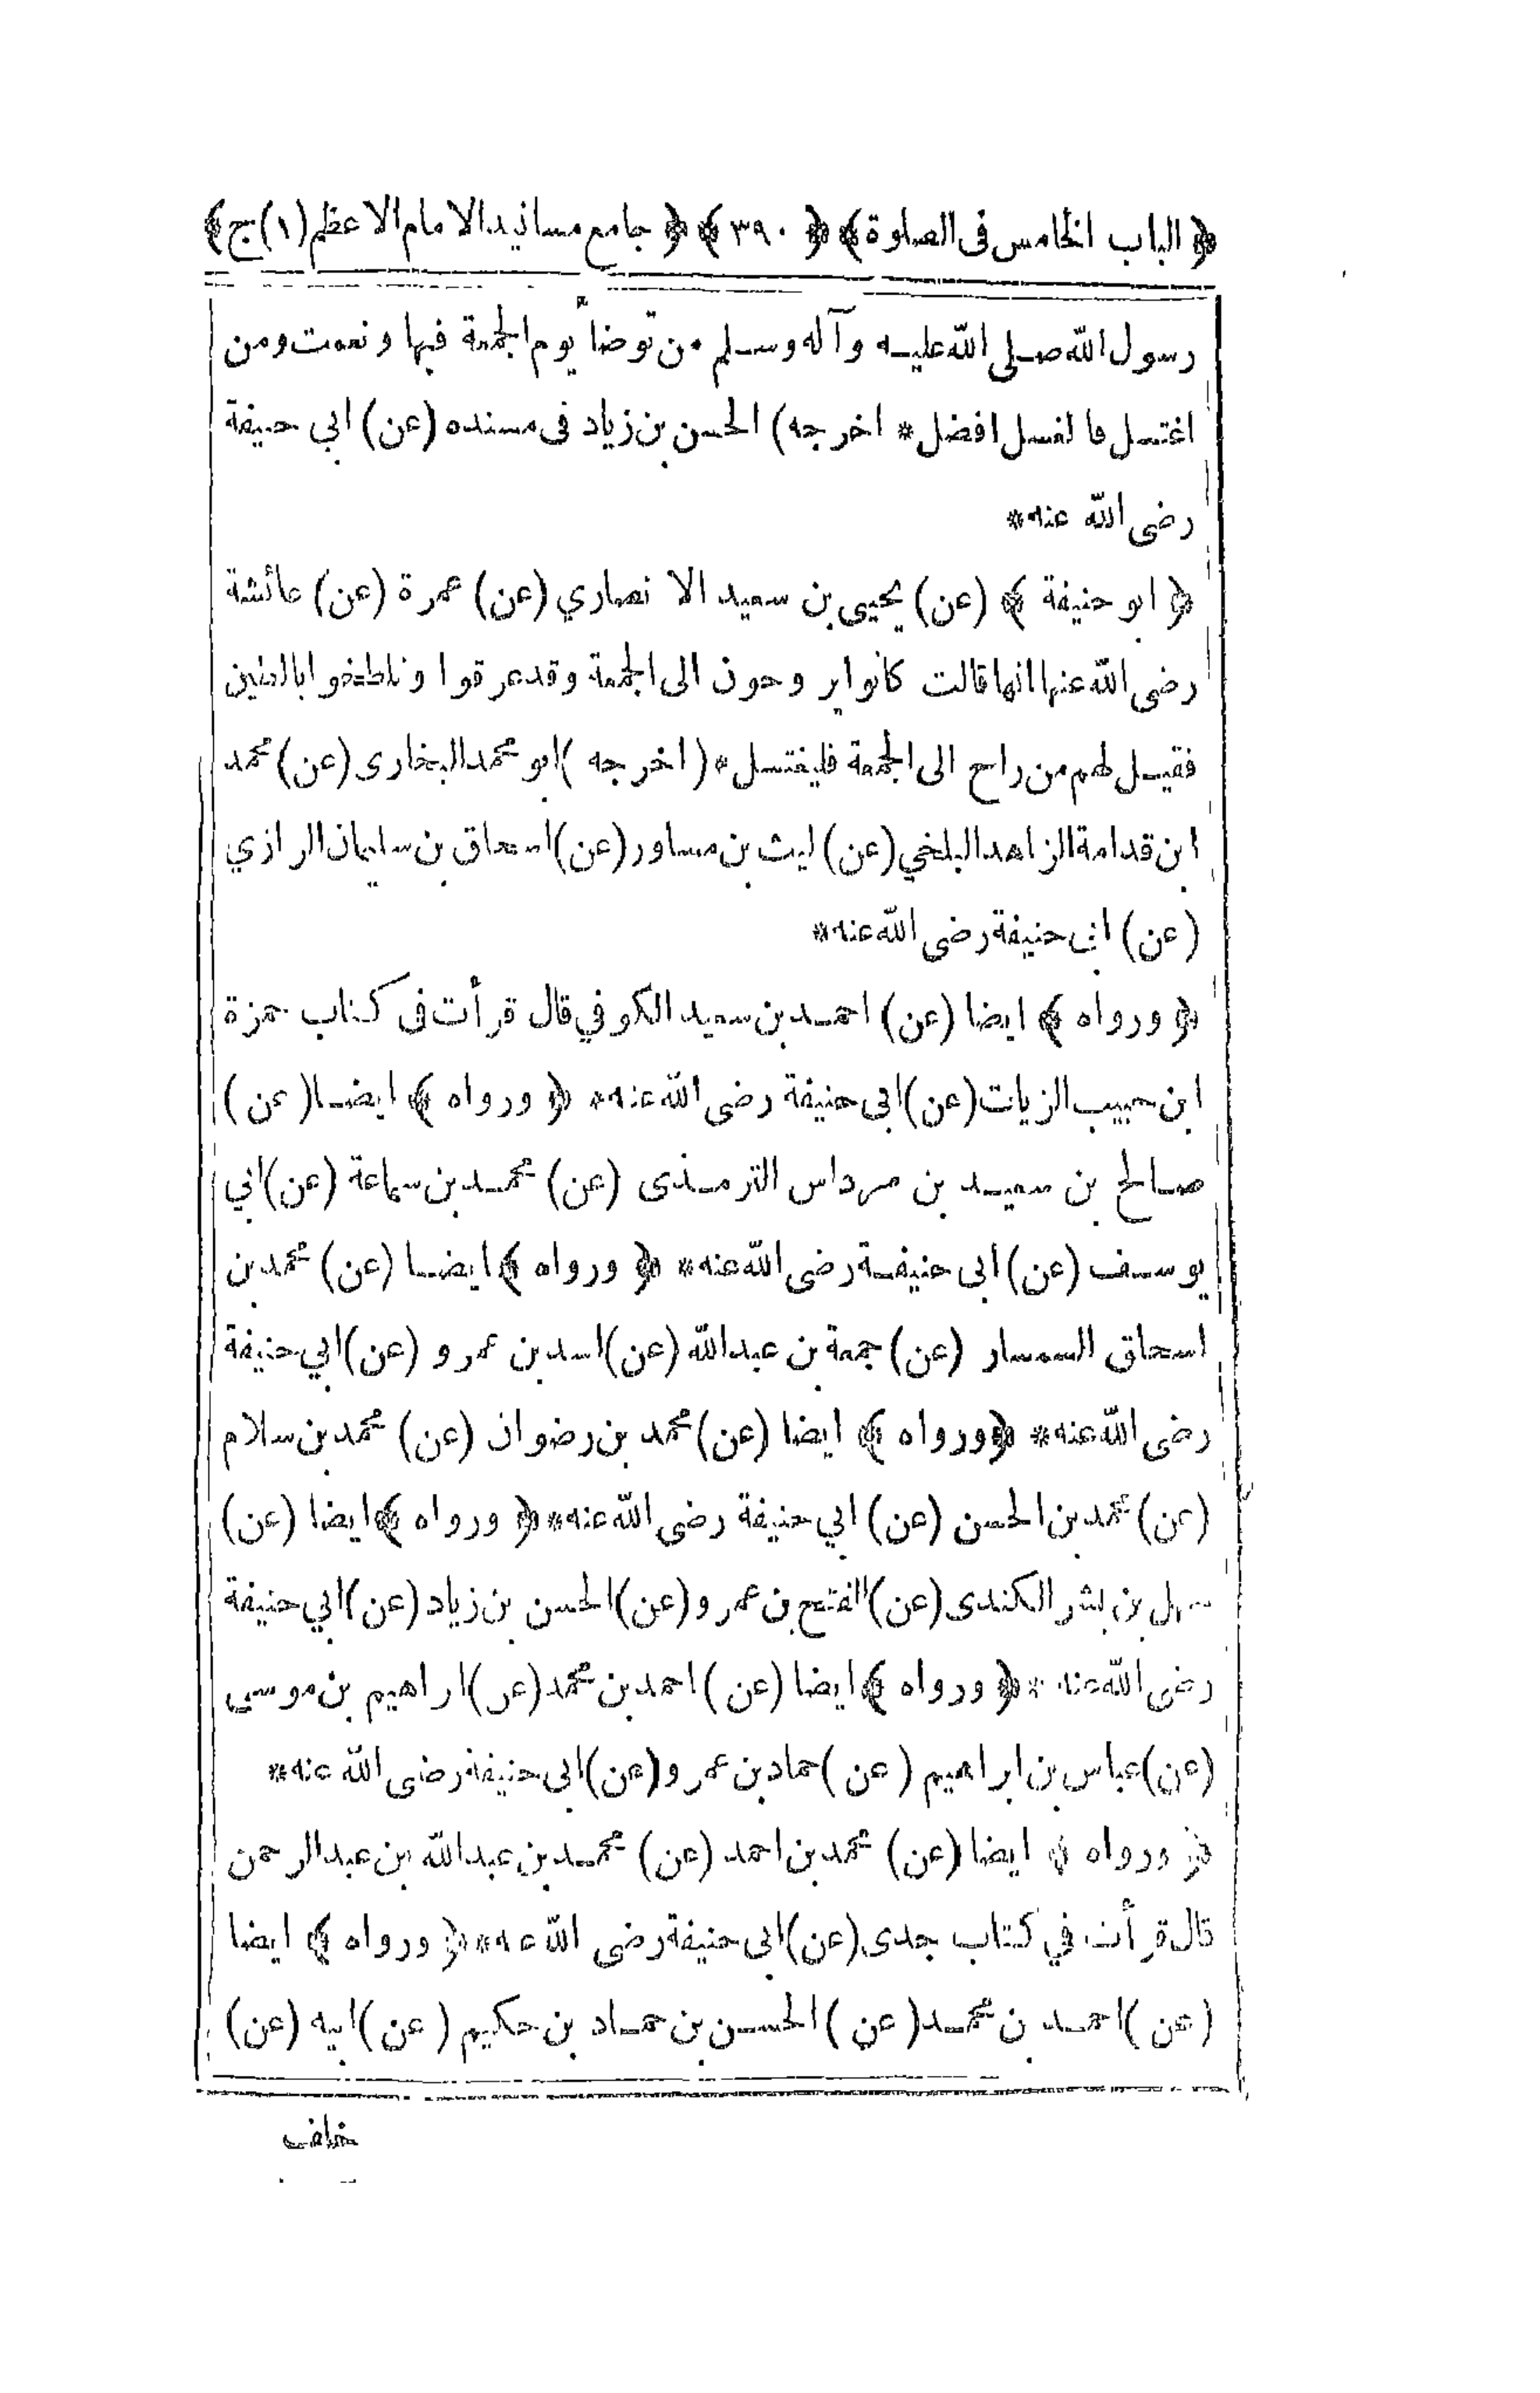 ﴿ الباب الخامس فى الصلوة ﴾ ﴿ ٣٩٠ ﴾ ﴿ جامع مسانيد الامام الاعظم (١) ج ﴾
رسول الله صلى الله عليه وآله وسلم من توضأ يوم الجمعة فبها ونعمت ومن
اغتسل فالغسل افضل * اخرجه) الحسن بن زياد فى مسنده (عن) ابي حنيفة
رضى الله عنه *
﴿ ابو حنيفة ﴾ (عن) يحيى بن سعيد الانصاري (عن) عمرة (عن) عائشة
رضى الله عنها انها قالت كانوا يروحون الى الجمعة وقد عرقوا وتلطخوا بالطين
فقيل لهم من راح الى الجمعة فليغتسل * (اخرجه) ابو محمد البخارى (عن) محمد
ابن قدامة الزاهد البلخي (عن) ليث بن مساور (عن) اسحاق بن سليمان الرازي
(عن) ابى حنيفة رضى الله عنه *
﴿ ورواه ﴾ ايضا (عن) احمد بن سعيد الكوفي قال قرأت فى كتاب حمزة
ابن حبيب الزيات (عن) ابى حنيفة رضى الله عنه * ﴿ ورواه ﴾ ايضا (عن)
صالح بن سعيد بن مرداس الترمذى (عن) محمد بن سماعة (عن) ابي
يوسف (عن) ابى حنيفة رضى الله عنه * ﴿ ورواه ﴾ ايضا (عن) محمد بن
اسحاق السمسار (عن) جمعة بن عبد الله (عن) اسد بن عمرو (عن) ابي حنيفة
رضى الله عنه * ﴿ ورواه ﴾ ايضا (عن) محمد بن رضوان (عن) محمد بن سلام
(عن) محمد بن الحسن (عن) ابي حنيفة رضى الله عنه * ﴿ ورواه ﴾ ايضا (عن)
سهل بن بشر الكندى (عن) الفتح بن عمرو (عن) الحسن بن زياد (عن) ابي حنيفة
رضى الله عنه * ﴿ ورواه ﴾ ايضا (عن) احمد بن محمد (عن) ابراهيم بن موسى
(عن) عباس بن ابراهيم (عن) حماد بن عمرو (عن) ابى حنيفة رضى الله عنه *
﴿ ورواه ﴾ ايضا (عن) محمد بن احمد (عن) محمد بن عبد الله بن عبد الرحمن
قال قرأت في كتاب جدى (عن) ابى حنيفة رضى الله عنه * ﴿ ورواه ﴾ ايضا
(عن) احمد بن محمد (عن) الحسن بن حماد بن حكيم (عن) ابيه (عن)
خلف